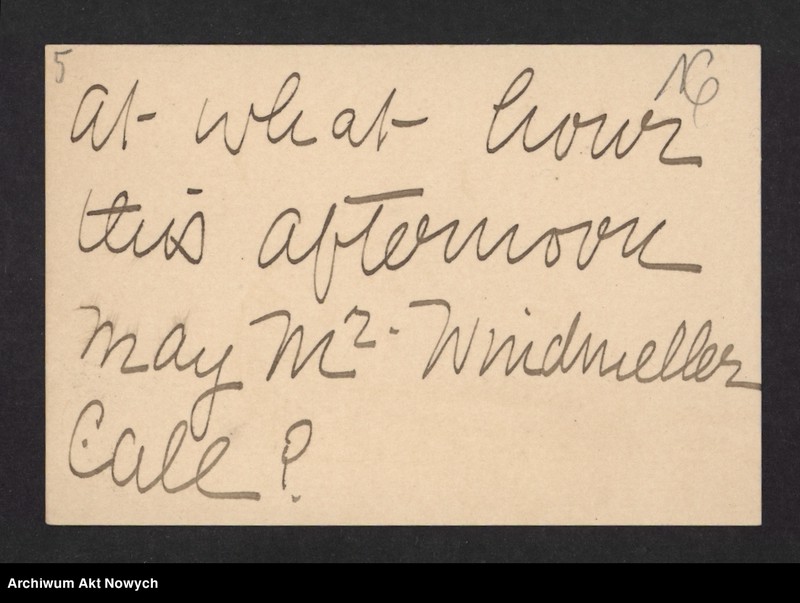 5
NC
at what hour
this afternoon
may Mr. Windmeller
Call?
Archiwum Akt Nowych